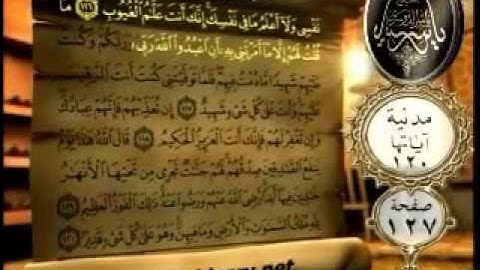 نَفْسِي وَلَا أَعْلَمُ مَا فِي نَفْسِكَ إِنَّكَ أَنتَ عَلَّامُ الْغُيُوبِ ١١٦ مَا
قُلْتُ لَهُمْ إِلَّا مَا أَمَرْتَنِي بِهِ أَنِ اعْبُدُوا اللَّهَ رَبِّي وَرَبَّكُمْ وَكُنتُ
عَلَيْهِمْ شَهِيدًا مَّا دُمْتُ فِيهِمْ فَلَمَّا تَوَفَّيْتَنِي كُنتَ أَنتَ الرَّقِيبَ
عَلَيْهِمْ وَأَنتَ عَلَى كُلِّ شَيْءٍ شَهِيدٌ ١١٧ إِن تُعَذِّبْهُمْ فَإِنَّهُمْ عِبَادُكَ
وَإِن تَغْفِرْ لَهُمْ فَإِنَّكَ أَنتَ الْعَزِيزُ الْحَكِيمُ ١١٨ قَالَ اللَّهُ هَذَا يَوْمُ
يَنفَعُ الصَّادِقِينَ صِدْقُهُمْ لَهُمْ جَنَّاتٌ تَجْرِي مِن تَحْتِهَا الْأَنْهَارُ
خَالِدِينَ فِيهَا أَبَدًا رَّضِيَ اللَّهُ عَنْهُمْ وَرَضُوا عَنْهُ ذَلِكَ الْفَوْزُ الْعَظِيمُ ١١٩
لِلَّهِ مُلْكُ السَّمَاوَاتِ وَالْأَرْضِ وَمَا فِيهِنَّ وَهُوَ عَلَى كُلِّ شَيْءٍ قَدِيرٌ ١٢٠
مدنية
آياتها
١٢٠
صفحة
١٢٧